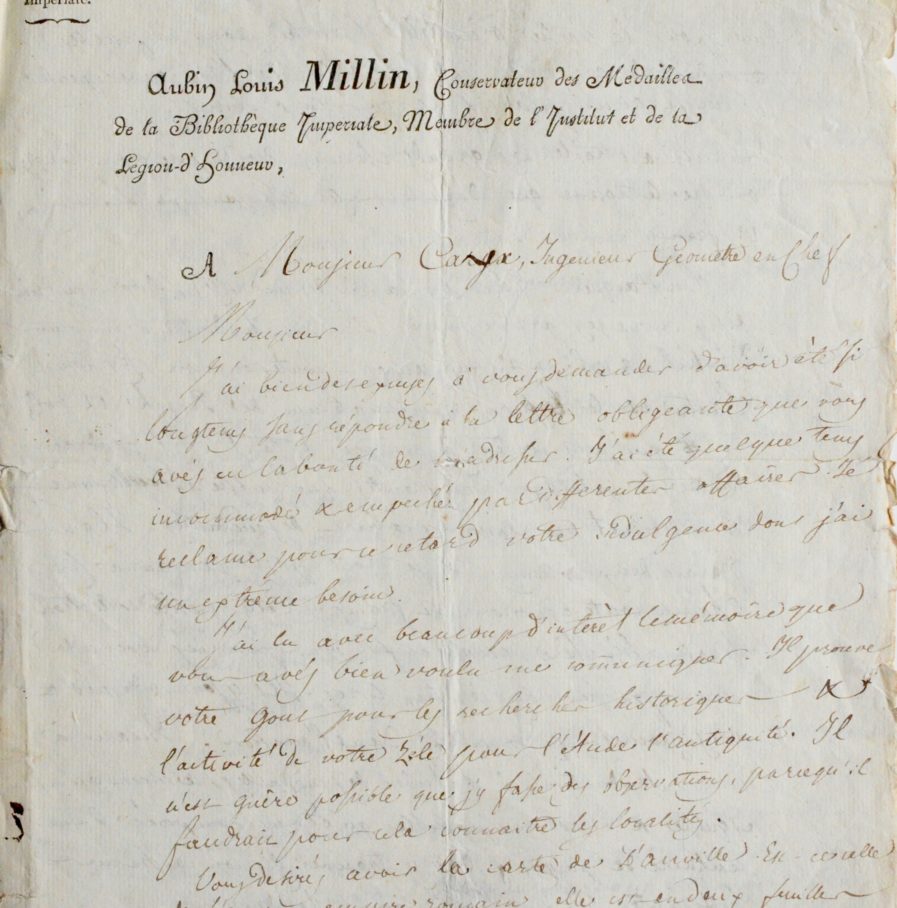 Impériale.
Aubin Louis Millin, Conservateur des Médailles
de la Bibliothèque Impériale, Membre de l'Institut et de la
Légion-d'Honneur,
A Monsieur Ingenieur Geometre en Chef
Monsieur
J'ai bien des excuses à vous demander d'avoir été si
longtems sans répondre à la lettre obligeante que vous
avés eu la bonté de m'adresser. J'ai été quelque tems
incommodé & empeché par differentes affaires Je
reclame pour ce retard votre indulgence dont j'ai
un extrême besoin.
J'ai lu avec beaucoup d'intérèt le mémoire que
vous avés bien voulu me communiquer. Il prouve
votre gout pour les recherches historiques &
l'activité de votre zéle pour l'étude l'antiquité. Il
n'est guère possible que j'y fasse des observations, parcequ'il
faudrait pour cela connaitre les localités.
Vous desirés avoir la carte de Danville Est-ce celle
empire romain elle est en deux feuilles